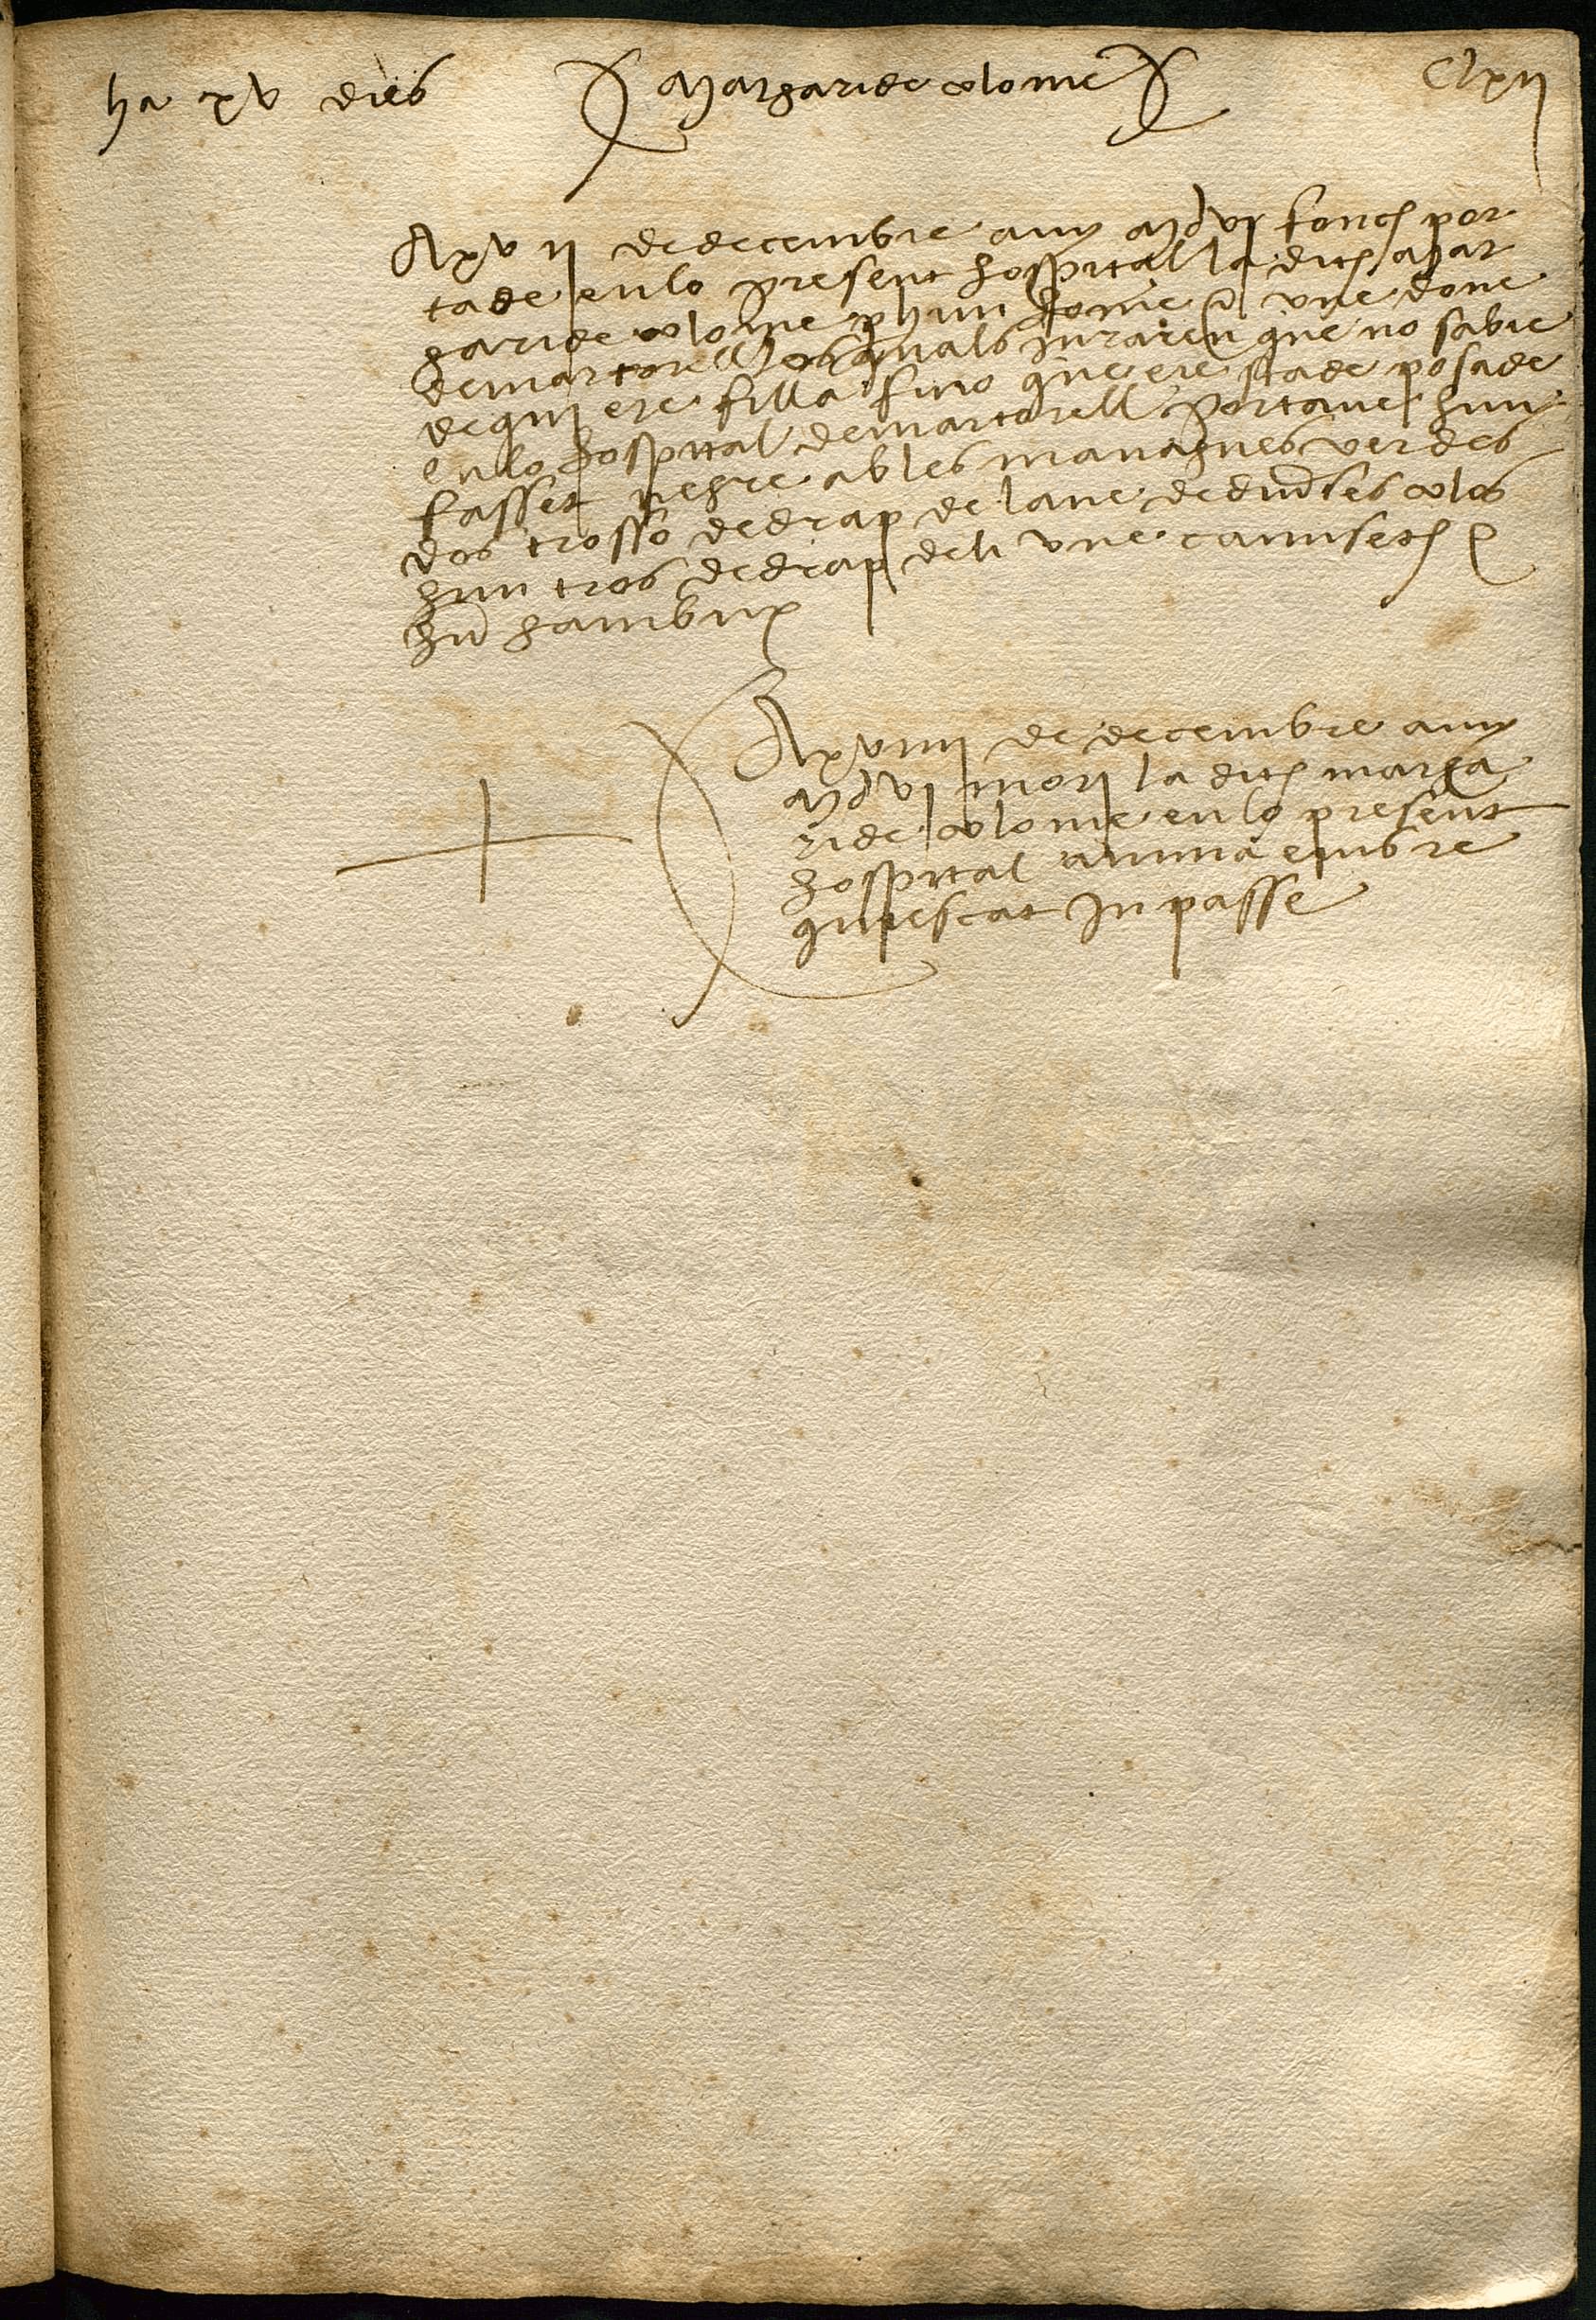 ha xv dies
Margaride colome
Clxii
A xvii de decembre any Mdvi fonch por
tade en lo present hospital la dita Mar
garide colome per hun home e une done
de martorell los quals juraren que no sabie
de qui ere filla sino que ere stade posade
en lo hospital de martorell portave hun
fasset negre ab les manegues verdes
dos trossos de drap de lane de diverses colos
hun tros de drap de li une camiseta e
hun gambux
A xviiii de decembre any
Mdvi mori la dita marga
ride colome en lo present
hospital anima eius re
quiescat In passe